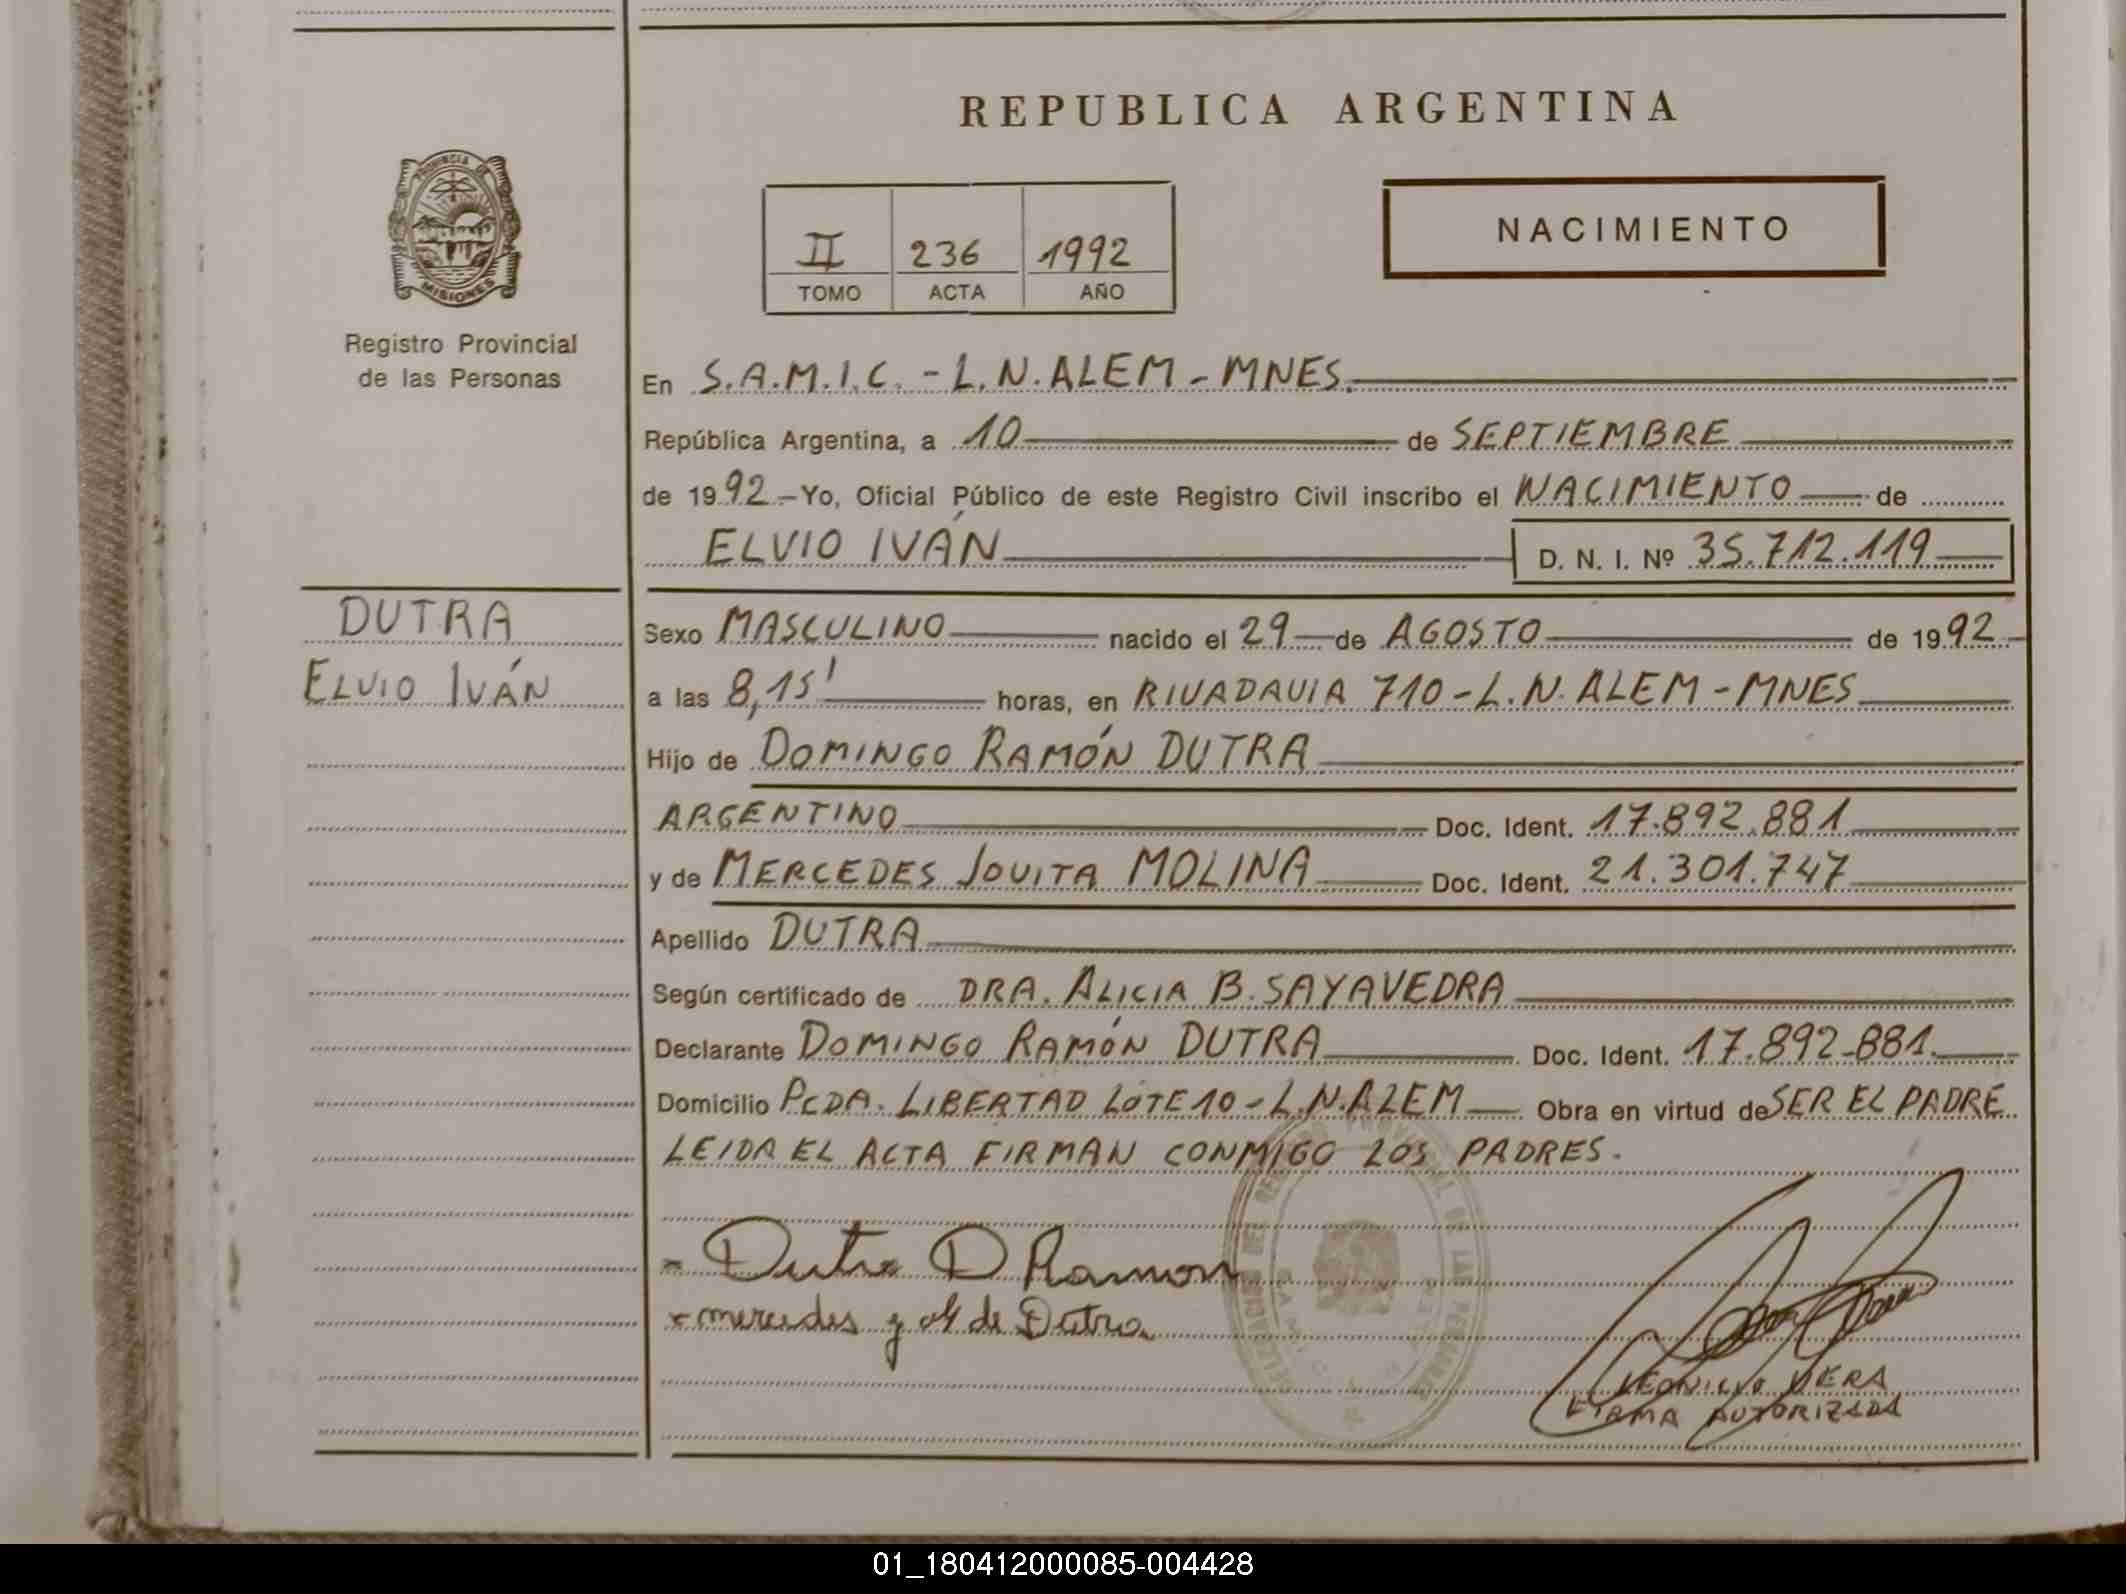 REPUBLICA ARGENTINA
PROVINCIA DE
MISIONES
Registro Provincial
de las Personas
II 236 1992
TOMO ACTA AÑO
NACIMIENTO
En S.A.M.I.C. - L.N. ALEM - MNES.
República Argentina, a 10 de SEPTIEMBRE
de 1992 - Yo, Oficial Público de este Registro Civil inscribo el NACIMIENTO de
ELVIO IVÁN D. N. I. Nº 35.712.119
DUTRA
ELVIO IVÁN
Sexo MASCULINO nacido el 29 de AGOSTO de 1992
a las 8,15' horas, en RIVADAVIA 710 - L.N. ALEM - MNES
Hijo de DOMINGO RAMÓN DUTRA
ARGENTINO Doc. Ident. 17.892.881
y de MERCEDES JOVITA MOLINA Doc. Ident. 21.301.747
Apellido DUTRA
Según certificado de DRA. ALICIA B. SAYAVEDRA
Declarante DOMINGO RAMÓN DUTRA Doc. Ident. 17.892.881
Domicilio PCDA. LIBERTAD LOTE 10 - L.N. ALEM Obra en virtud de SER EL PADRE
LEIDA EL ACTA FIRMAN CONMIGO LOS PADRES.
Dutra D Ramon
mercedes y de Dutra
VIERA
FIRMA AUTORIZADA
01_180412000085-004428